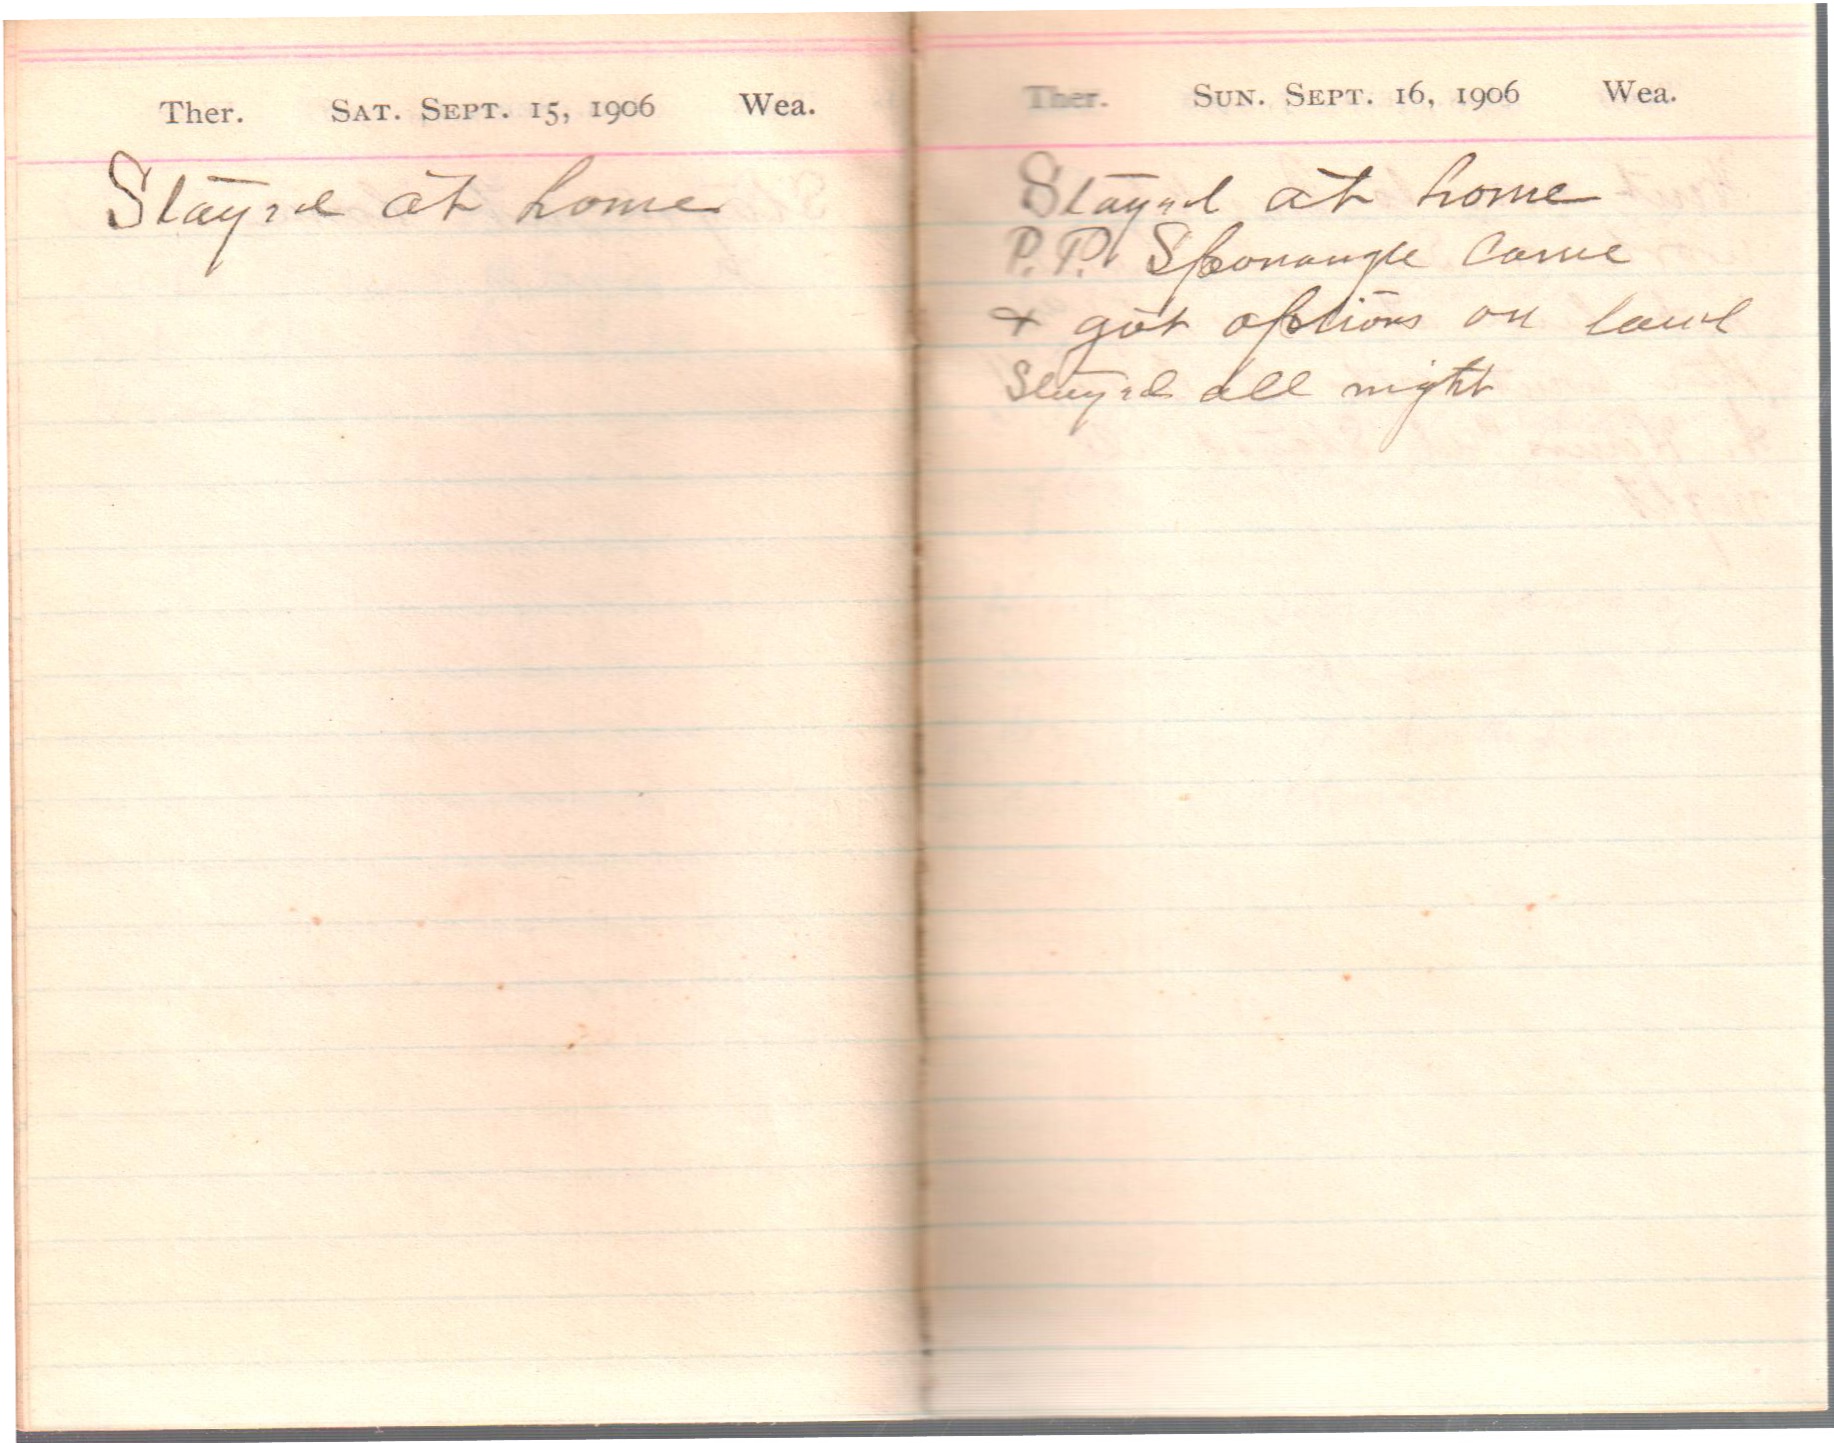 Ther. Sat. Sept. 15, 1906 Wea.
Stayed at home
Ther. Sun. Sept. 16, 1906 Wea.
Stayed at home
P. P. Sponaugle came
+ got options on land
Stayed all night